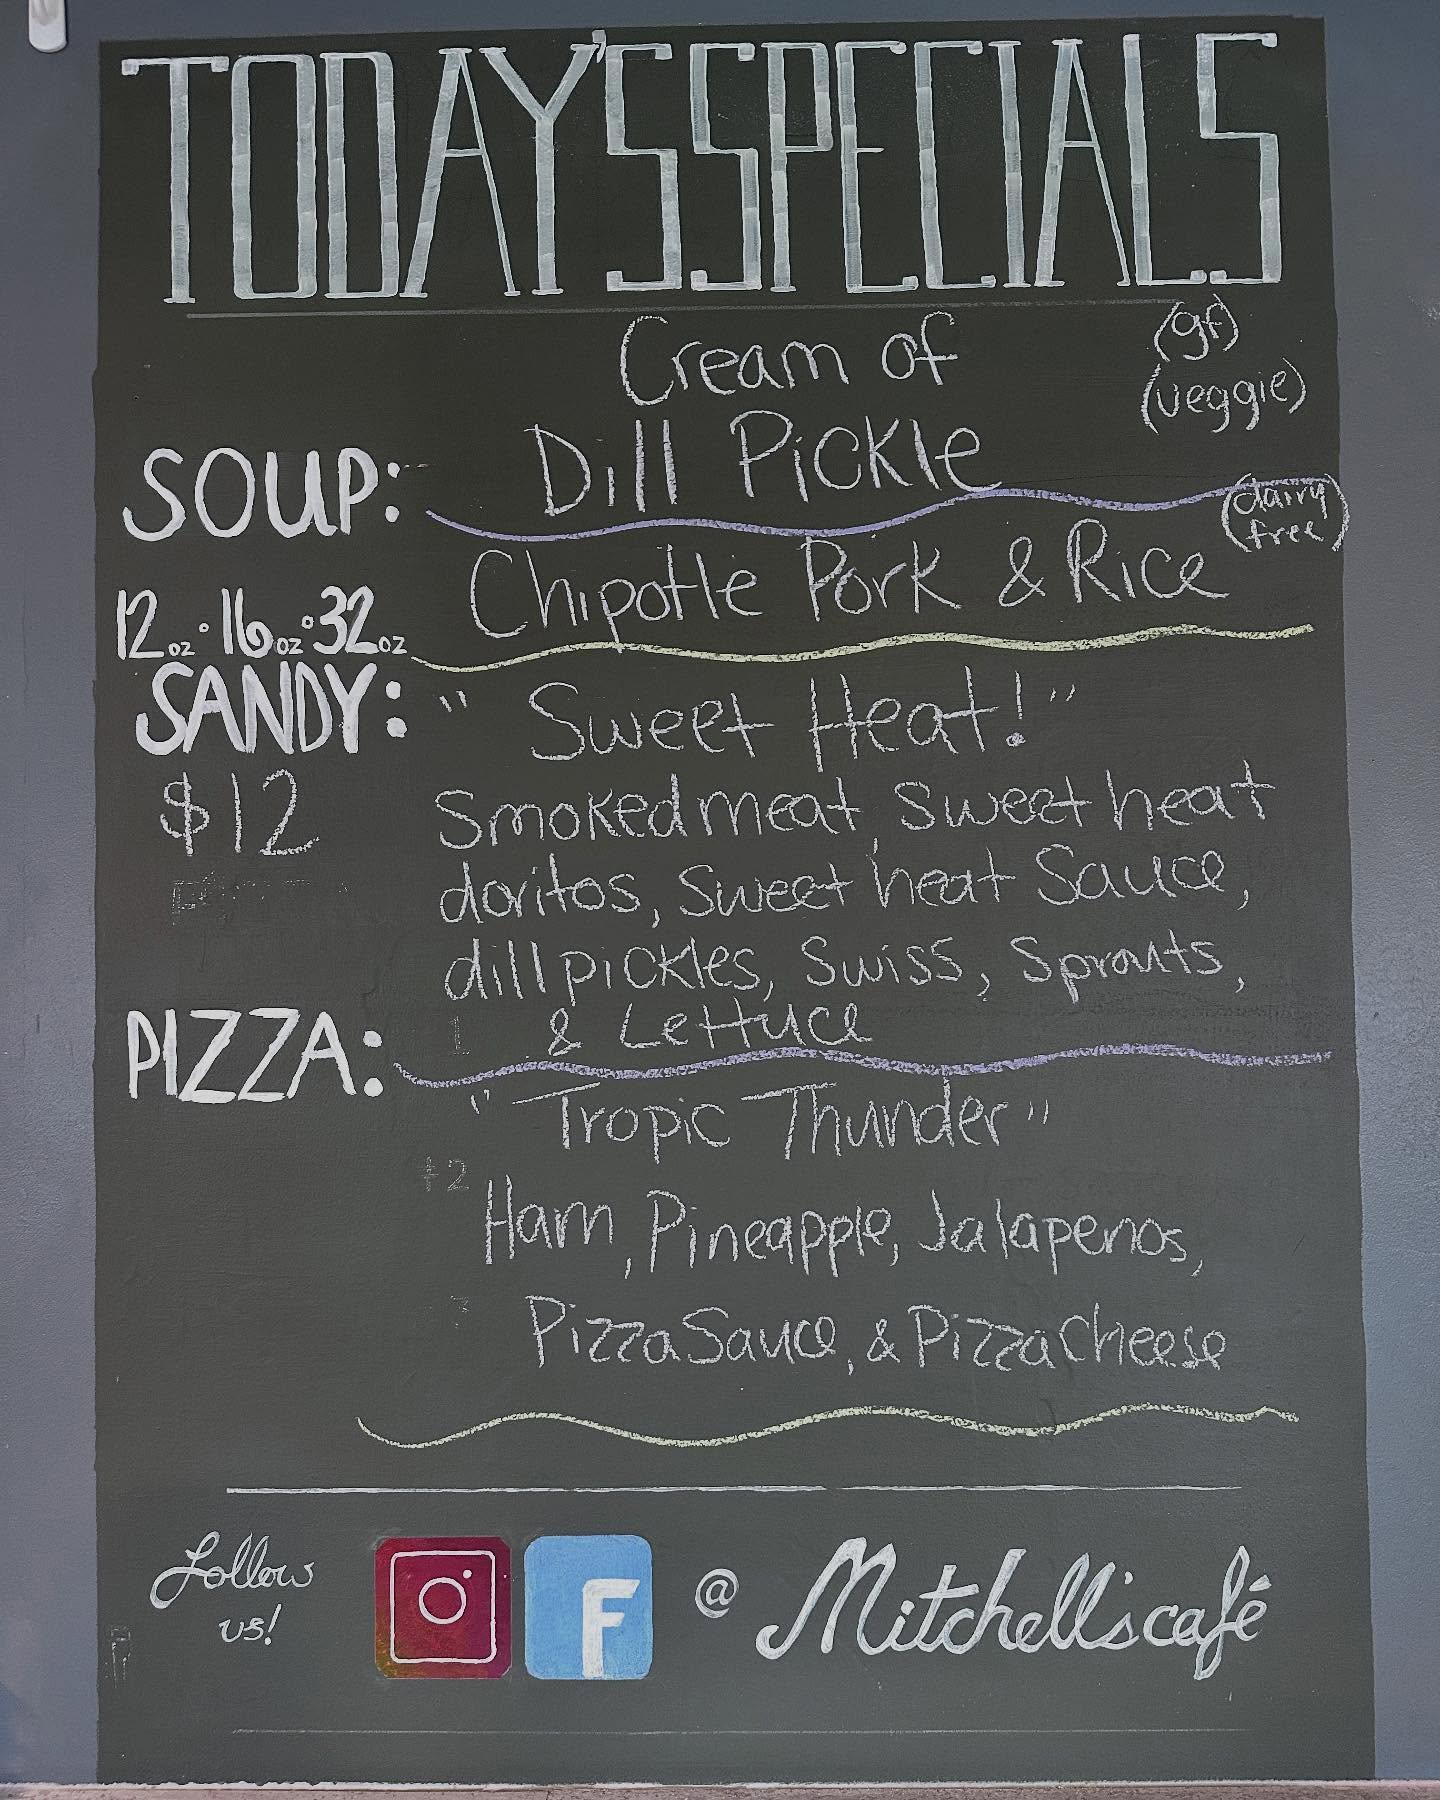 TODAY'S SPECIALS
Cream of
(gf)
(veggie)
Dill Pickle
SOUP:
(dairy
free)
Chipotle Pork & Rice
12oz • 16oz • 32oz
SANDY:
"Sweet Heat!"
$12
Smoked meat, Sweet heat
doritos, Sweet heat Sauce,
dill pickles, Swiss, Sprouts,
& Lettuce
PIZZA:
"Tropic Thunder"
Ham, Pineapple, Jalapenos,
Pizza Sauce, & Pizza Cheese
Follow
us!
@ Mitchell'scafé